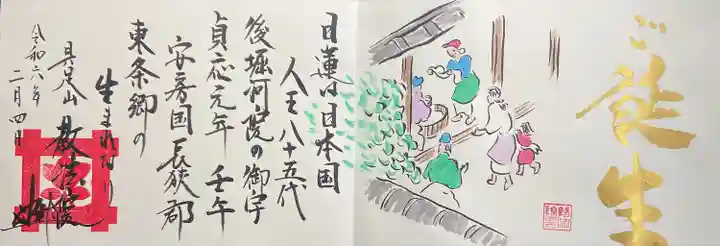 ご誕生
日蓮は日本国
人王八十五代
後堀河院の御宇
貞応元年 壬午
安房国長狭郡
東条郷の
生まれなり
具足山 教法院
令和六年
二月四日